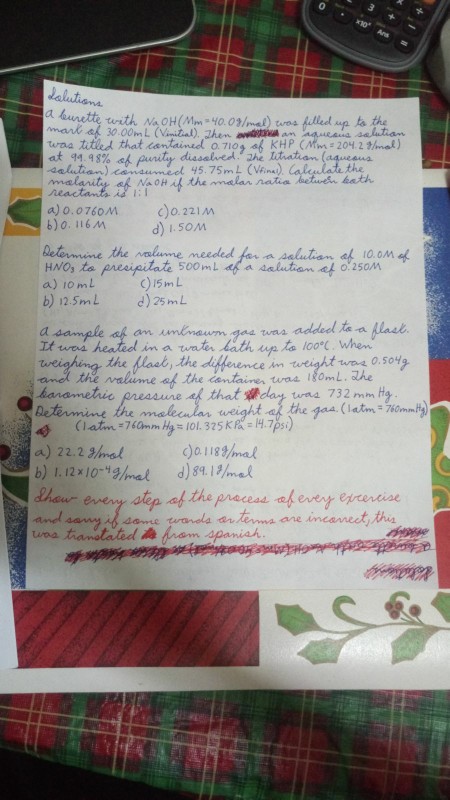 Solutions
A burette with NaOH (Mm=40.0g/mol) was filled up to the
mark of 30.00mL (Vinitial). Then an aqueous solution
was titled that contained 0.710g of KHP (Mm=204.2g/mol)
at 99.98% of purity dissolved. The titration (aqueous
solution) consumed 45.75mL (Vfinal). Calculate the
molarity of NaOH if the molar ratio between both
reactants is 1:1
a) 0.0760M c) 0.221M
b) 0.116M d) 1.50M
Determine the volume needed for a solution of 10.0M of
HNO3 to presipitate 500mL of a solution of 0.250M
a) 10mL c) 15mL
b) 12.5mL d) 25mL
A sample of an unknown gas was added to a flask.
It was heated in a water bath up to 100°C. When
weighing the flask, the difference in weight was 0.504g
and the volume of the container was 180mL. The
barometric pressure of that day was 732mmHg.
Determine the molecular weight of the gas. (1atm=760mmHg)
(1atm=760mmHg=101.325KPa=14.7psi)
a) 22.2g/mol c) 0.118g/mol
b) 1.12x10-4g/mol d) 89.1g/mol
Show every step of the process of every excercise
and sorry if some words or terms are incorrect, this
was translated from spanish.
0 . x10x Ans =
3 +